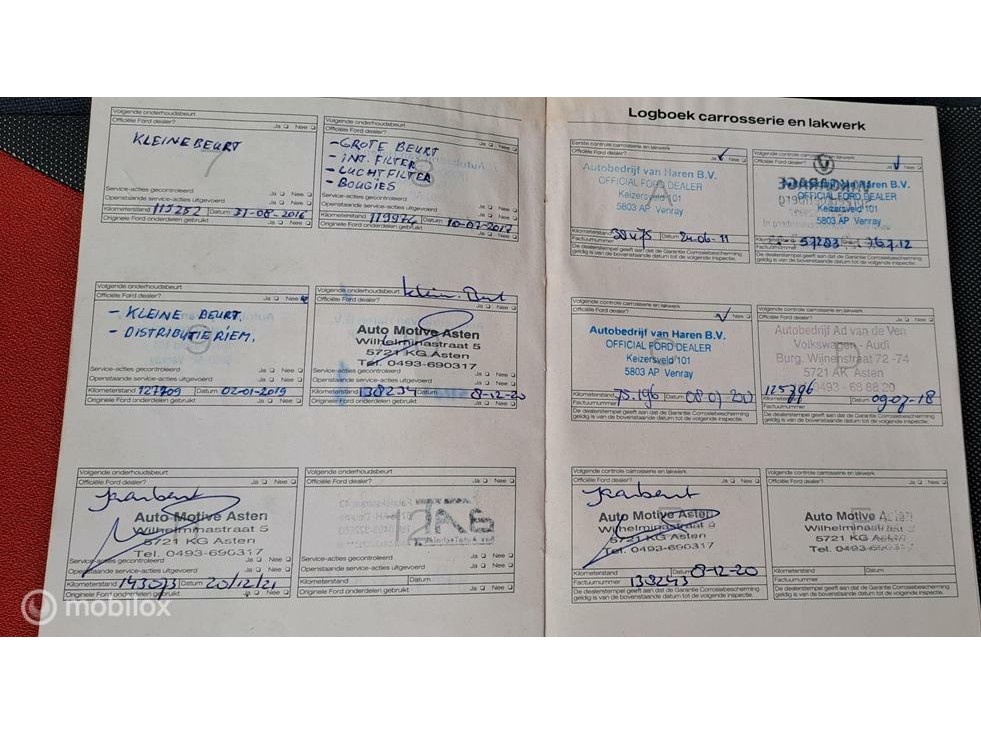 Volgende onderhoudsbeurt
Officiële Ford dealer?
Ja Nee
KLEINE BEURT
7
Service-acties gecontroleerd
Ja Nee
Openstaande service-acties uitgevoerd
Ja Nee
Kilometerstand 119252 Datum 31-08-2016
Originele Ford onderdelen gebruikt
Ja Nee
Volgende onderhoudsbeurt
Officiële Ford dealer?
Ja Nee
- GROTE BEURT
- INT. FILTER
- LUCHTFILTER
- BOUGIES
8
Service-acties gecontroleerd
Ja Nee
Openstaande service-acties uitgevoerd
Ja Nee
Kilometerstand Datum 10-07-2017
Originele Ford onderdelen gebruikt
Ja Nee
Volgende onderhoudsbeurt
Officiële Ford dealer?
Ja Nee
- KLEINE BEURT.
- DISTRIBUTIERIEM.
9
Service-acties gecontroleerd
Ja Nee
Openstaande service-acties uitgevoerd
Ja Nee
Kilometerstand 127709 Datum 02-01-2019
Originele Ford onderdelen gebruikt
Ja Nee
Volgende onderhoudsbeurt
Officiële Ford dealer?
Ja Nee
Auto Motive Asten
Wilhelminastraat 5
5721 KG Asten
Tel. 0493-690317
Service-acties gecontroleerd
Ja Nee
Openstaande service-acties uitgevoerd
Ja Nee
Kilometerstand 138234 Datum 8-12-20
Originele Ford onderdelen gebruikt
Ja Nee
Volgende onderhoudsbeurt
Officiële Ford dealer?
Ja Nee
Auto Motive Asten
Wilhelminastraat 5
5721 KG Asten
Tel. 0493-690317
Service-acties gecontroleerd
Ja Nee
Openstaande service-acties uitgevoerd
Ja Nee
Kilometerstand 143073 Datum 20/12/21
Originele Ford onderdelen gebruikt
Ja Nee
Volgende onderhoudsbeurt
Officiële Ford dealer?
Ja Nee
12
Service-acties gecontroleerd
Ja Nee
Openstaande service-acties uitgevoerd
Ja Nee
Kilometerstand Datum
Originele Ford onderdelen gebruikt
Ja Nee
Logboek carrosserie en lakwerk
Eerste controle carrosserie en lakwerk
Officiële Ford dealer?
Ja Nee
Autobedrijf van Haren B.V.
OFFICIAL FORD DEALER
Keizersveld 101
5803 AP Venray
Kilometerstand 38475 Datum 24-06-11
Factuurnummer
De dealerstempel geeft aan dat de Garantie Corrosiebescherming
geldig is van de bovenstaande datum tot de volgende inspectie.
Volgende controle carrosserie en lakwerk
Officiële Ford dealer?
Ja Nee
van Haren B.V.
OFFICIAL FORD DEALER
Keizersveld 101
5803 AP Venray
Kilometerstand 57283 Datum
Factuurnummer
De dealerstempel geeft aan dat de Garantie Corrosiebescherming
geldig is van de bovenstaande datum tot de volgende inspectie.
Volgende controle carrosserie en lakwerk
Officiële Ford dealer?
Ja Nee
Autobedrijf van Haren B.V.
OFFICIAL FORD DEALER
Keizersveld 101
5803 AP Venray
Kilometerstand 75.196 Datum
Factuurnummer
De dealerstempel geeft aan dat de Garantie Corrosiebescherming
geldig is van de bovenstaande datum tot de volgende inspectie.
Volgende controle carrosserie en lakwerk
Officiële Ford dealer?
Ja Nee
Autobedrijf Ad van de Ven
Volkswagen - Audi
Burg. Wijnenstraat 72 -74
5721 AK Asten
0493 - 68 88 20
125796
Kilometerstand Datum 09-07-18
Factuurnummer
De dealerstempel geeft aan dat de Garantie Corrosiebescherming
geldig is van de bovenstaande datum tot de volgende inspectie.
Volgende controle carrosserie en lakwerk
Officiële Ford dealer?
Ja Nee
Auto Motive Asten
Wilhelminastraat
5721 KG Asten
Tel. 0493-690317
Kilometerstand Datum 8-12-20
Factuurnummer 138243
De dealerstempel geeft aan dat de Garantie Corrosiebescherming
geldig is van de bovenstaande datum tot de volgende inspectie.
Volgende controle carrosserie en lakwerk
Officiële Ford dealer?
Ja Nee
Auto Motive Asten
Wilhelminastraat
5721 KG Asten
Tel. 0493-690317
Kilometerstand Datum
Factuurnummer
De dealerstempel geeft aan dat de Garantie Corrosiebescherming
geldig is van de bovenstaande datum tot de volgende inspectie.
mobilox